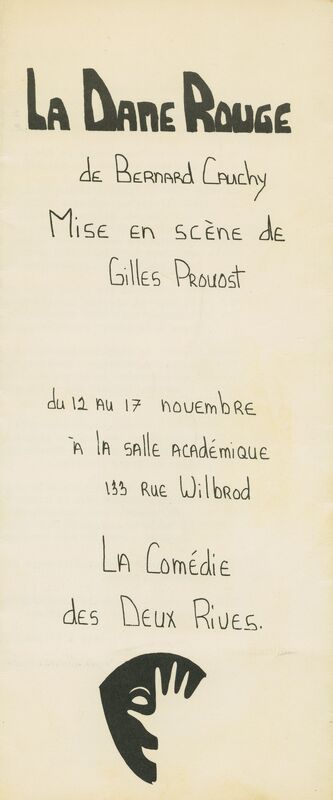 La Dame Rouge
de Bernard Cauchy
Mise en scène de
Gilles Provost
du 12 au 17 novembre
à la salle académique
133 rue Wilbrod
La Comédie
des Deux Rives.